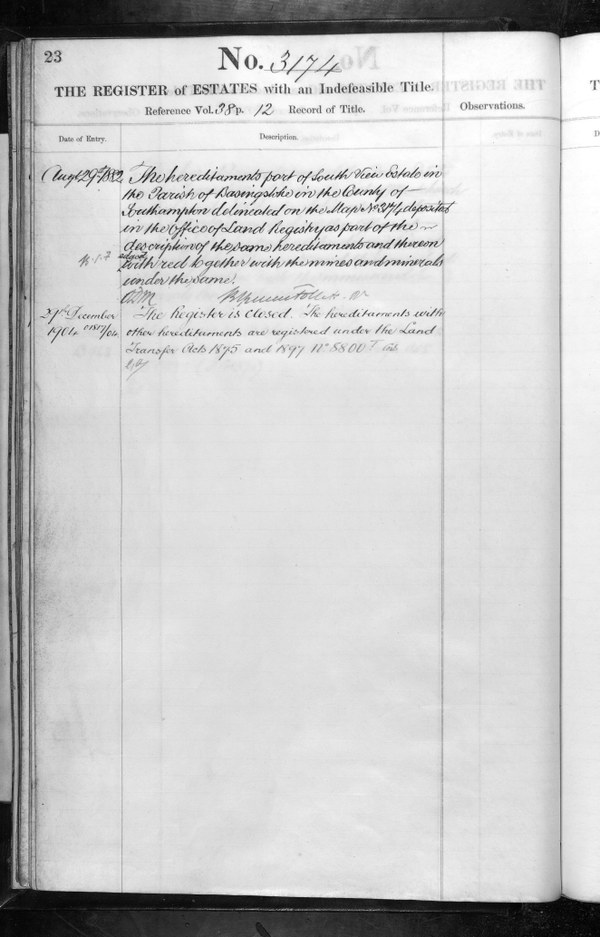 23
No. 3174
THE REGISTER of ESTATES with an Indefeasible Title.
Reference Vol. 38 p. 12 Record of Title.
Observations.
Date of Entry.
Description.
Augt. 29th 1882
The hereditaments part of South View Estate in
the Parish of Basingstoke in the County of
Southampton delineated on the Map No. 3174 deposited
in the Office of Land Registry as part of the
description of the same hereditaments and thereon
edged
with red together with the mines and minerals
under the same.
29th December
1904
The Register is closed. The hereditaments with
other hereditaments are registered under the Land
Transfer Acts 1875 and 1897 No. 8800